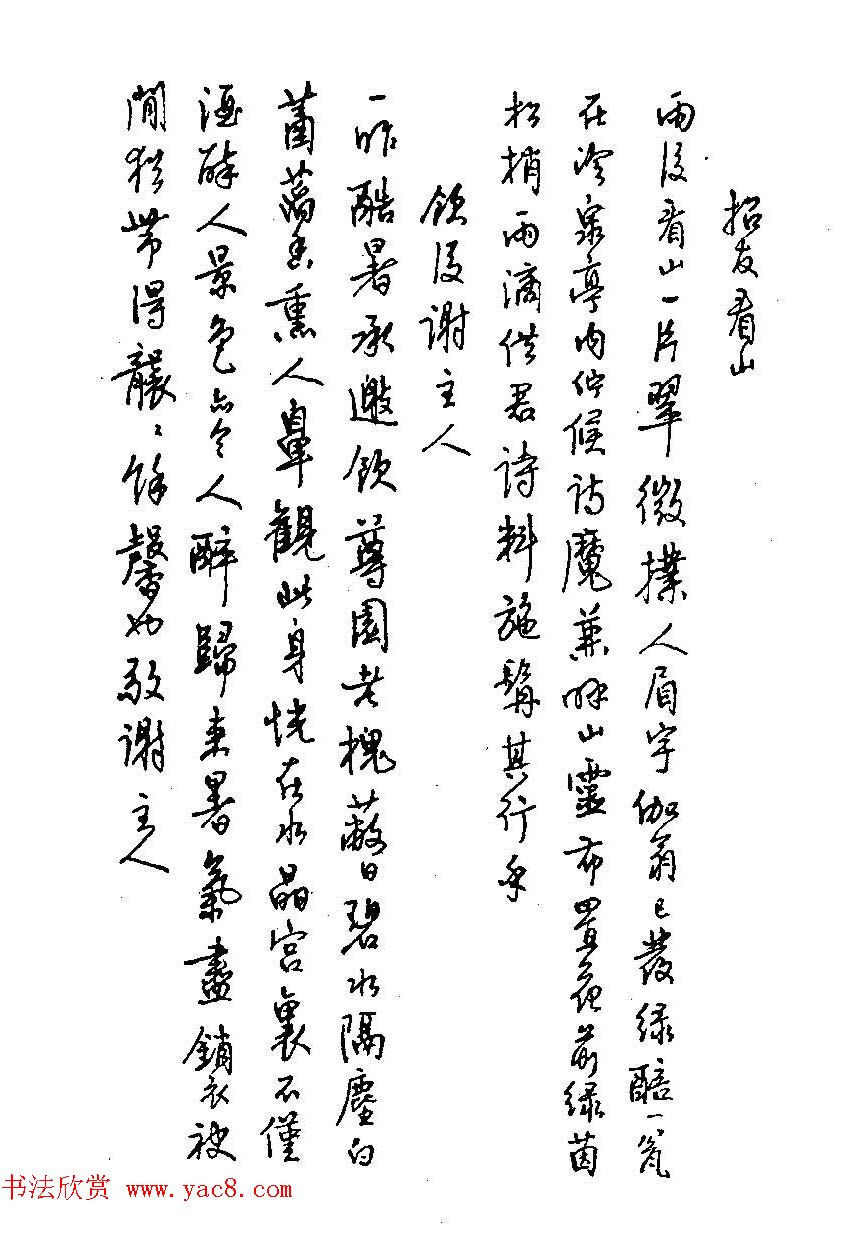 招友看山
雨後看山一片翠微撲人眉宇伽翁已發綠醅一瓮
在冷泉亭内佇候詩魔兼呼山靈布置花前綠茵
松梢雨滴供君詩料施髯其行乎
飲後謝主人
一昨酷暑承邀飲尊園老槐蔽日碧水隔塵白
菡萏香熏人鼻觀此身恍在水晶宮裏不僅
酒醉人景色亦令人醉歸来暑氣盡銷衣袂
間猶帶得襲〻餘馨也敬謝主人
书法欣赏 www.yac8.com